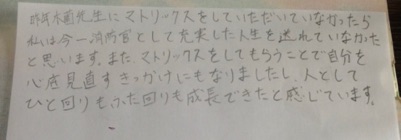 昨年木画先生にマトリックスをしていただいていなかったら
私は今一消防官として充実した人生を送れていなかった
と思います。また、マトリックスをしてもらうことで自分を
心底見直すきっかけにもなりましたし、人として
ひと回りもふた回りも成長できたと感じています。